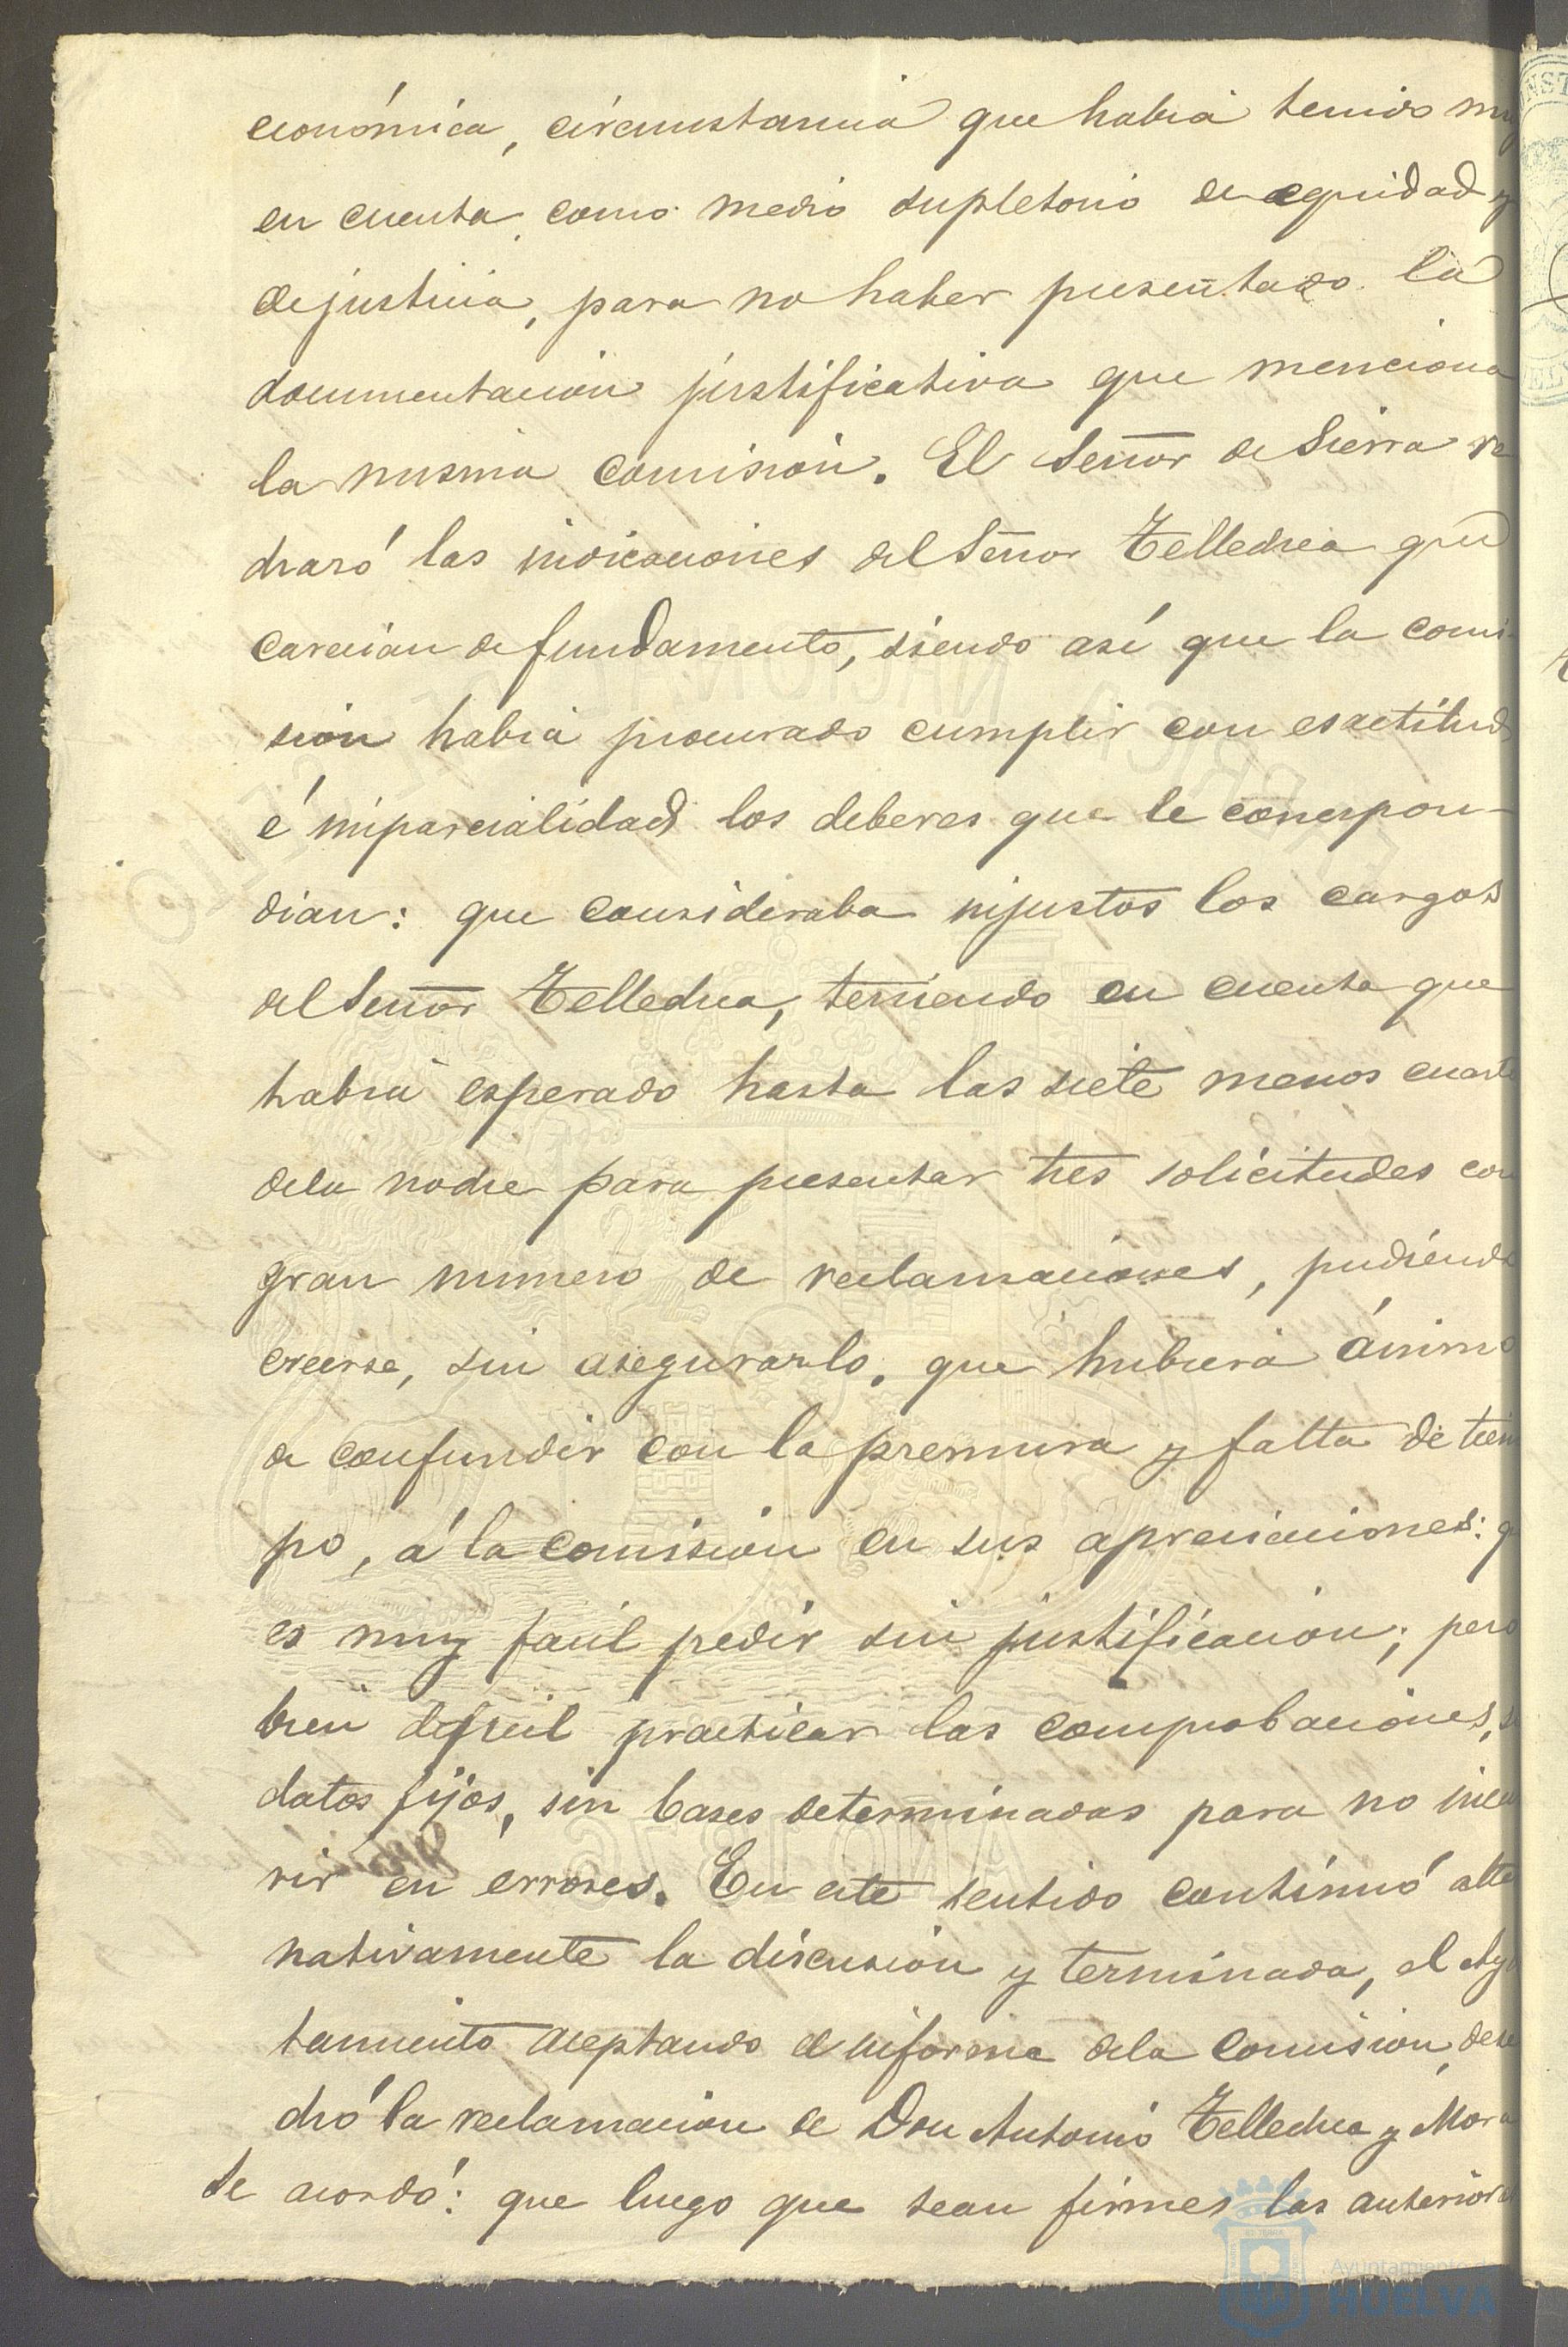 económica, circunstancia que habia tenido muy
en cuenta, como medio supletorio de equidad y
de justicia, para no haber presentado la
documentacion justificativa que menciona
la misma comision. El Señor de Sierra re
chazó las indicaciones del Señor Tellechea que
carecian de fundamento, siendo así que la comi-
sion habia procurado cumplir con esactitud
é imparcialidad los deberes que le correspon-
dian: que consideraba injustos los cargos
del Señor Tellechea, teniendo en cuenta que
habia esperado hasta las siete menos cuarto
de la noche para presentar tres solicitudes con
gran numero de reclamaciones, pudiendo
creerse, sin asegurarlo, que hubiera ánimo
de confundir con la premura y falta de tiem
po, á la comision en sus apreciaciones: q
es muy facil pedir sin justificacion; pero
bien dificil practicar las comprobaciones, s
datos fijos, sin bases determinadas para no incu
rir en errores. En este sentido continuó alte
nativamente la discusion y terminada, el Ay
tamiento aceptando el informe de la Comision, dese
chó la reclamacion de Don Antonio Tellechea y Mora
Se acordó: que luego que sean firmes las anteriores
Ayuntamiento de
HUELVA